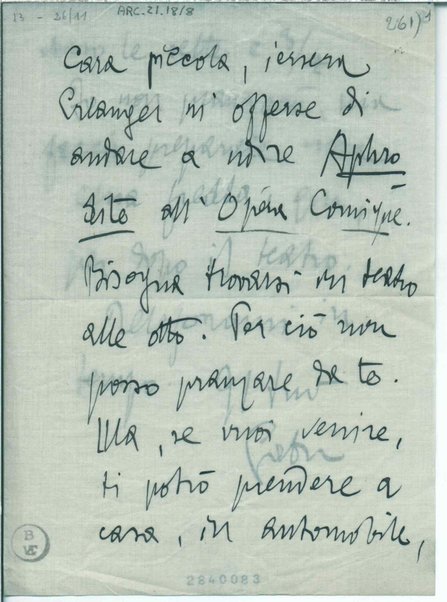 13 - 26/11
ARC.21.18/8
261)1
Cara piccola, iersera
Erlanger m'offerse di
andare a udire Aphro
dite all'Opéra Comique.
Bisogna trovarsi in teatro
alle otto. Per ciò non
posso pranzare da te.
Ma, se vuoi venire,
ti potrò prendere a
casa, in automobile,
2840083